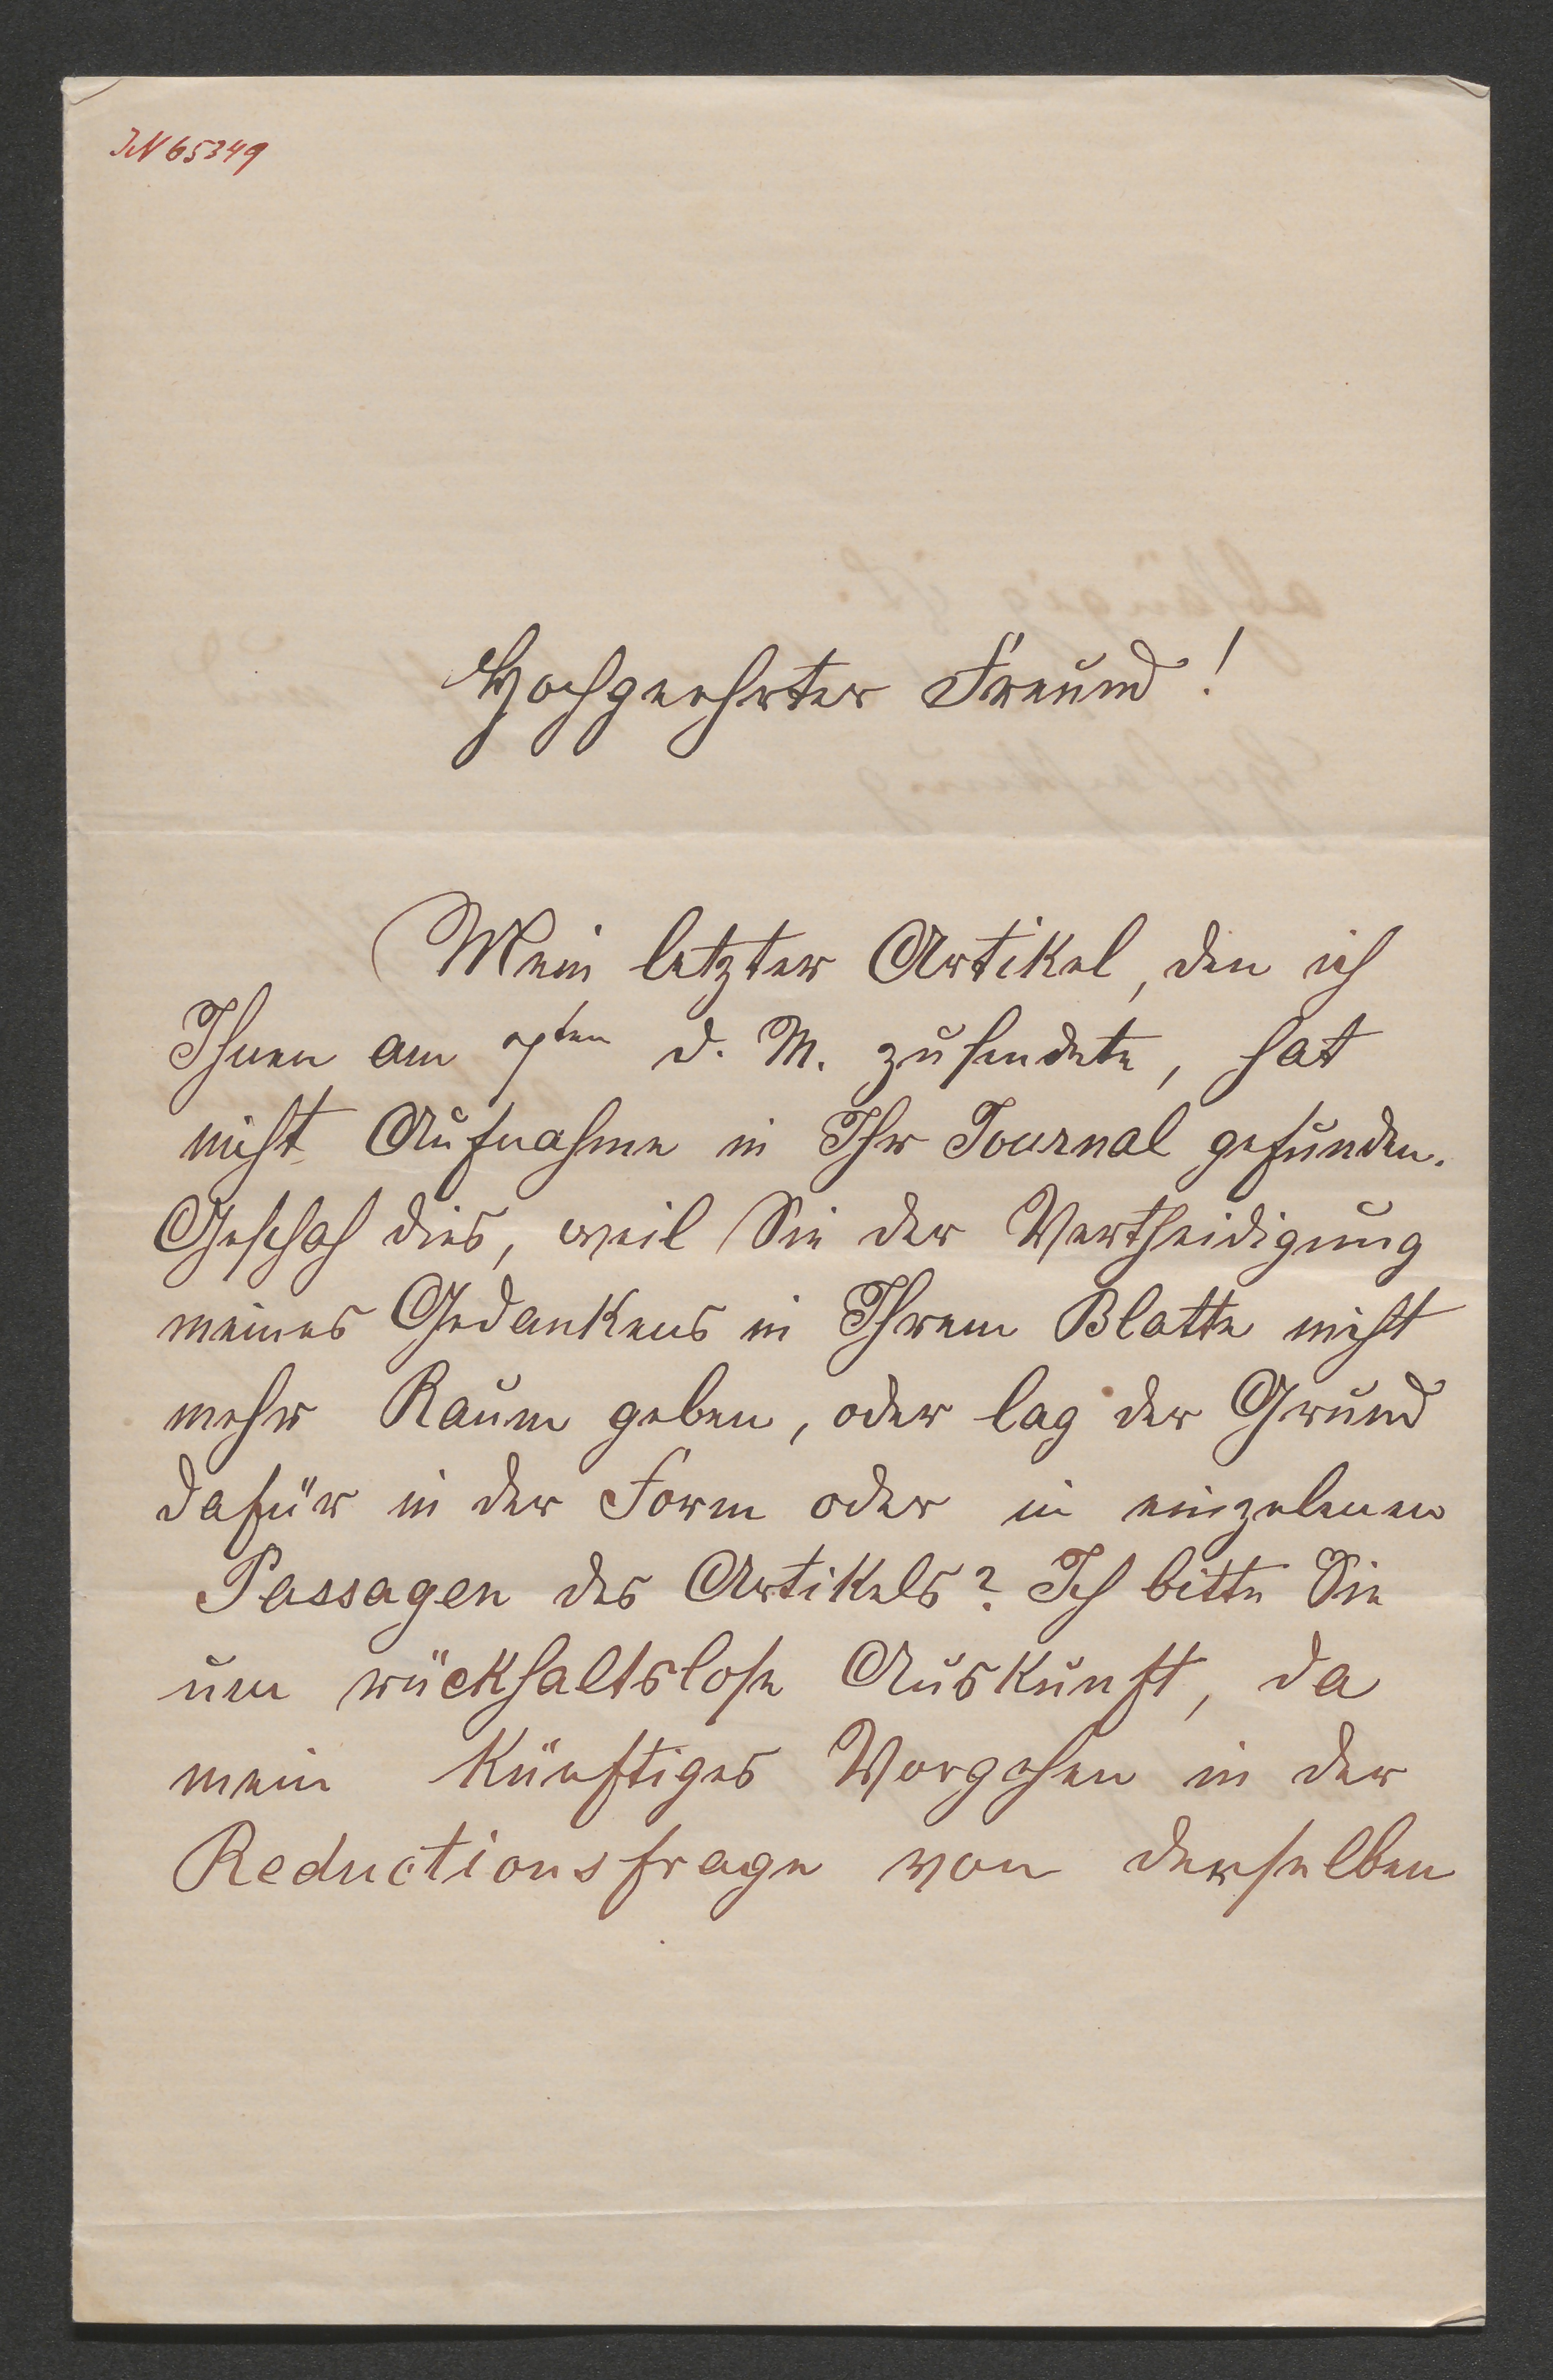 IN 65349
Hochgeehrter Freund!
Mein letzter Artikel, den ich
Ihnen am 7ten d. M. zusendete, hat
nicht Aufnahme in Ihr Journal gefunden.
Geschah dies, weil Sie der Vertheidigung
meines Gedankens in Ihrem Blatte nicht
mehr Raum geben, oder lag der Grund
dafür in der Form oder in einzelnen
Passagen des Artikels? Ich bitte Sie
um rückhaltslose Auskunft, da
mein künftiges Vorgehen in der
Reductionsfrage von derselben